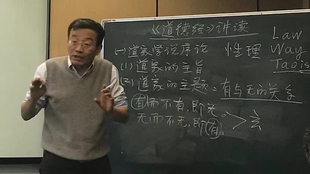 《道德经》讲读
(一)道家学说序论 性理
(1)道家的主旨
(2)道家的主题=有与无的关系
有而不有,即无
无而不无,即有 > 玄
Law
Way
Taois